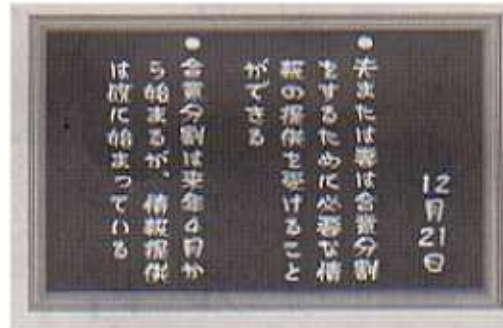 12月21日
●夫または妻は合意分割
をするために必要な情
報の提供を受けること
ができる
●合意分割は来年4月か
ら始まるが、情報提供
は既に始まっている